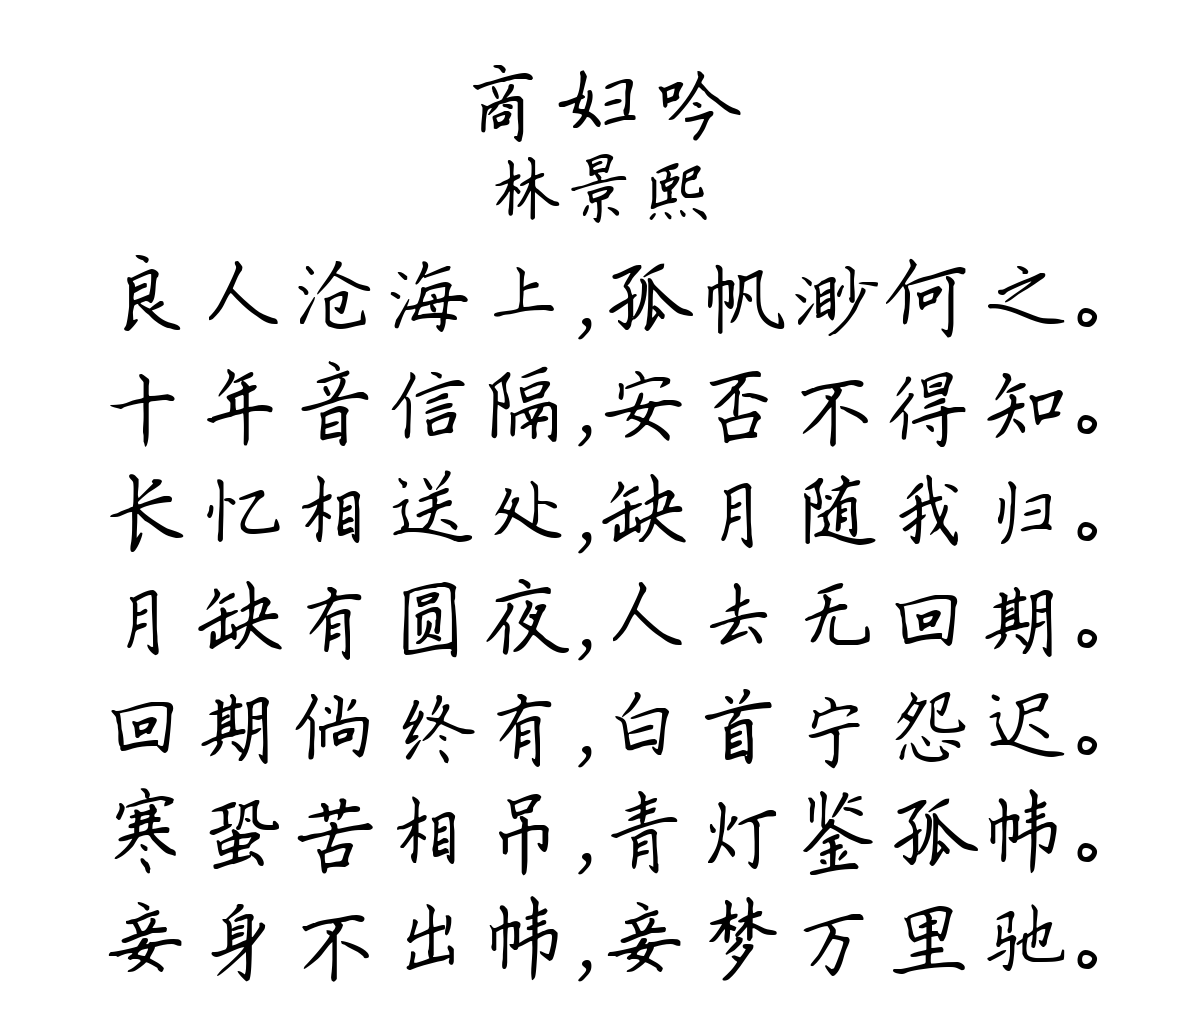 商妇吟
林景熙
良人沧海上,孤帆渺何之。
十年音信隔,安否不得知。
长忆相送处,缺月随我归。
月缺有圆夜,人去无回期。
回期倘终有,白首宁怨迟。
寒蛩苦相吊,青灯鉴孤帏。
妾身不出帏,妾梦万里驰。